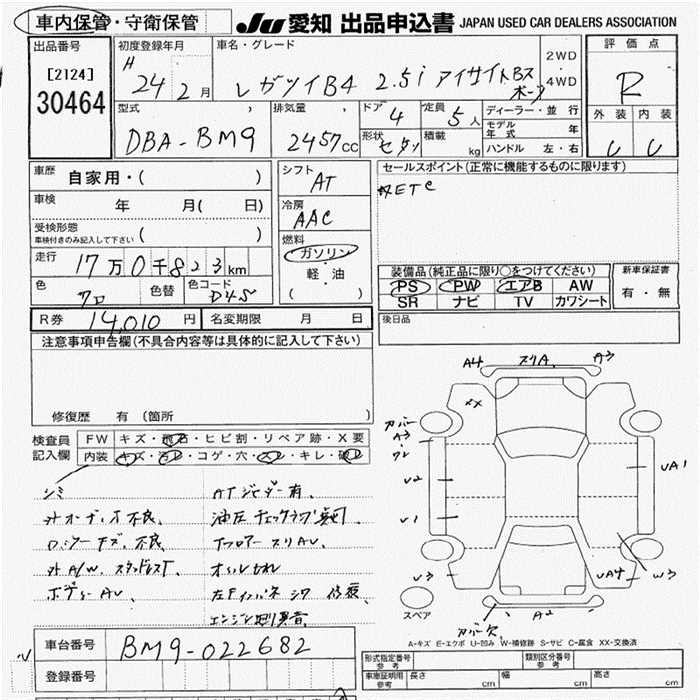 車内保管・守衛保管
JU 愛知 出品申込書 JAPAN USED CAR DEALERS ASSOCIATION
出品番号
[2124]
30464
初度登録年月
H 24 2月
車名・グレード
レガシィB4 2.5i アイサイトBスポーツ
2WD
4WD
評価点
R
外装 内装
型式
DBA-BM9
排気量
2457cc
ドア 4
形状 セダン
定員 5人
積載 kg
ディーラー・並行
モデル年式 年
ハンドル 左・右
車歴 自家用・( )
車検 年 月( 日)
受検形態
車検付きのみ記入して下さい ( )
走行 17万0千823km
色 クロ
色替
色コード D4S
シフト AT
冷房 AAC
燃料
ガソリン
軽・油
( )
セールスポイント(正常に機能するものに限ります)
ETC
装備品(純正品に限り○をつけてください)
PS PW エアB AW
SR ナビ TV カワシート
新車保証書
有・無
R券 14,010円
名変期限 月 日
後日品
注意事項申告欄(不具合内容等は具体的に記入して下さい)
修復歴 有(箇所 )
検査員記入欄
FW キズ・飛石・ヒビ割・リペア跡・X要
内装 キズ・汚レ・コゲ・穴・スレ・キレ・破レ
シミ
外オーディオ不良、
不良、
外A/W、スタッドレスT、
ボデーAU、
有、
油圧チェックランプ点灯
フロアースリAU、
オイルもれ
A4 スリA A3
XX
カバー
A3
U2
U1
U3
UA1
UA4
W3
A2
カバー欠
スペア
A-キズ E-エクボ U-凹み W-補修跡 S-サビ C-腐食 XX-交換済
車台番号 BM9-022682
登録番号
形式指定番号 参考
類別区分番号 参考
車庫証明用 参考
長さ cm
幅 cm
高さ cm